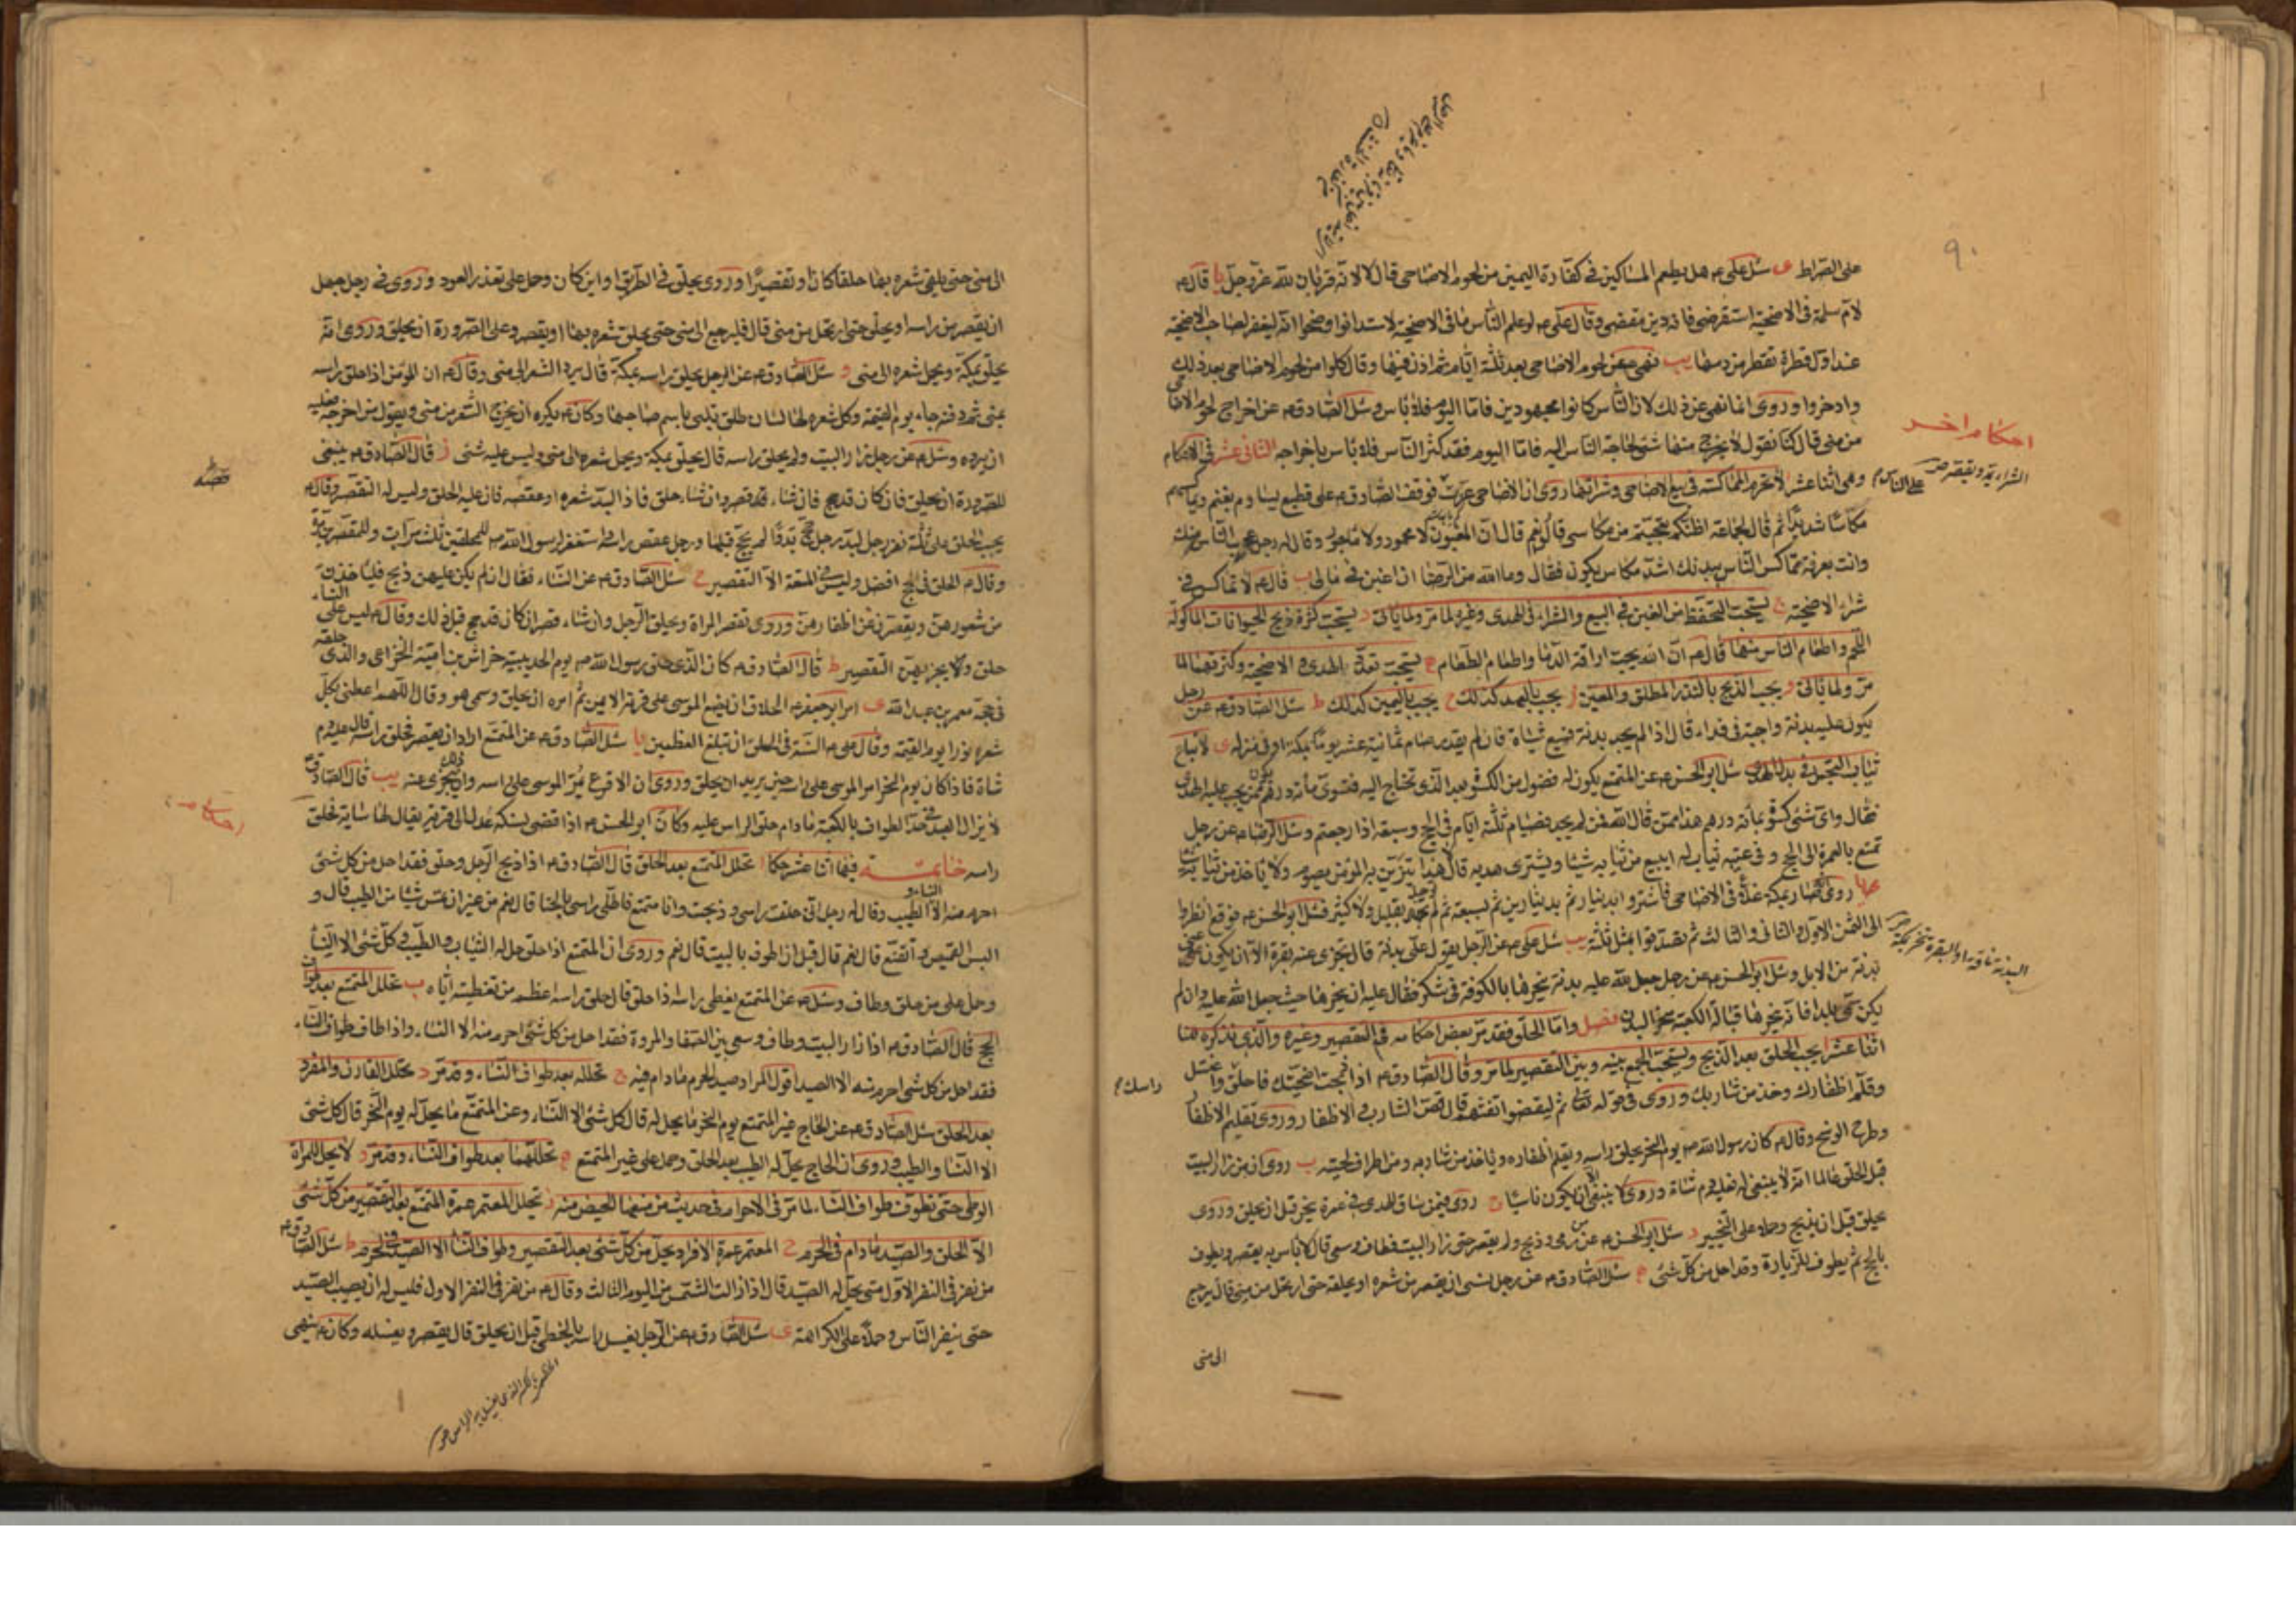 ٩٠
على الصراط ى سئل علىم هل يطعم المساكين فى كفارة اليمين من لحوم الاضاحى قال لا لانه قربان لله عز وجل يا قال م
لام سلمة فى الاضحية استقرضى فانه دين مقضى وقال على م لو علم الناس ما فى الاضحية لاستدانوا وضحوا انه ليغفر لصاحب الاضحية
عند اول قطرة تقطر من دمها يب نهى عن لحوم الاضاحى بعد ثلثة ايام ثم اذن فيها وقال كلوا من لحوم الاضاحى بعد ذلك
وادخروا وروى انما نهى عن ذلك لان الناس كانوا مجهودين فاما اليوم فلا باس وسئل الصادق م عن اخراج لحوم الاضاحى
من منى قال كنا نقول لا يخرج منها شئ لحاجة الناس اليه فاما اليوم فقد كثر الناس فلا باس باخراجه الثانى عشر فى الاحكام
احكام اخر
وهى اثنا عشر ا لا تحرم المماكسة فى بيع الاضاحى وشرائها روى ان الاضاحى عزت فوقف الصادق م على قطيع يساوم بغنم ويماكسهم
مكاسا شديدا ثم قال لجماعة اظنكم تعجبتم من مكاسى قالوا نعم قال ان المغبون لا محمود ولا ماجور وقال له رجل
وانت بعرفة تماكس الناس ببدنك اشد مكاس يكون فقال وما لله من الرضا ان اغبن فى مالى ب قال م لا تماكس فى
شراء الاضحية ج يستحب التحفظ من الغبن فى البيع والشراء فى الهدى وغيره لما مر ولما ياتى د يستحب كثرة ذبح الحيوانات الماكولة
اللحم واطعام الناس منها قال م ان الله يحب اراقة الدما واطعام الطعام ه يستحب تعدد الهدى والاضحية وكثرتهما لما
مر ولما ياتى و يجب الذبح بالنذر المطلق والمعين ز يجب بالعهد كذلك ح يجب باليمين كذلك ط سئل الصادق م عن رجل
يكون عليه بدنة واجبة فى فداء قال اذا لم يجد بدنة فسبع شياة فان لم يقدر صام ثمانية عشر يوما بمكة او فى منزله ى لا تباع
ثياب التجمل فى بدل الهدى سئل ابو الحسن م عن المتمتع يكون له فضول من الكسوة بعد الذى تحتاج اليه فتسوى مائة درهم ممن يجب عليه الهدى
فقال واى شئ كسوة بمائة درهم هذا ممن قال الله فمن لم يجد فصيام ثلثة ايام فى الحج وسبعة اذا رجعتم وسئل الرضا م عن رجل
تمتع بالعمرة الى الحج وفى عيبته ثياب له ايبيع من ثيابه شيئا ويشترى هديه قال هذا يتزين به المومن يصوم ولا ياخذ من ثيابه شيئا
يا روى عمن صار بمكة غلاء فى الاضاحى فاشتروا بدينار ثم بدينارين ثم بسبعة ثم لم نجد بقليل ولا كثير فسئل ابو الحسن م فوقع انظروا
الى الثمن الاول والثانى والثالث ثم تصدقوا بمثل ثلثه يب سئل على م عن الرجل يقول على بدنة قال تجزى عنه بقرة الا ان يكون عنى
بدنة من الابل وسئل ابو الحسن م عن رجل جعل لله عليه بدنة ينحرها بالكوفة فى شكر فقال عليه ان ينحرها حيث جعل الله عليه وان لم
يكن سمى بلدا فانه ينحرها قبالة الكعبة منحر البدن فصل واما الحلق فقد مر بعض احكامه فى التقصير وغيره والذى نذكره هنا
اثنا عشر ا يجب الحلق بعد الذبح ويستحب الجمع بينه وبين التقصير لما مر وقال الصادق م اذا ذبحت اضحيتك فاحلق راسك واغتسل
وقلم اظفارك وخذ من شاربك وروى فى قوله تعالى ثم ليقضوا تفثهم قال قص الشارب والاظفار وروى تقليم الاظفار
وطرح الوسخ وقال م كان رسول الله ص يوم النحر يحلق راسه ويقلم اظفاره وياخذ من شاربه ومن اطراف لحيته ب روى ان من زار البيت
قبل الحلق عالما انه لا ينبغى له فعليه دم شاة وروى لا ينبغى الا ان يكون ناسيا ج روى فيمن ساق الهدى فى عمرة ينحر قبل ان يحلق وروى
يحلق قبل ان يذبح وحمل على التخيير د سئل ابو الحسن م عن من رمى وذبح ولم يقصر حتى زار البيت فطاف وسعى قال لا باس به يقصر ويطوف
بالحج ثم يطوف للزيارة وقد احل من كل شئ ه سئل الصادق م عن رجل نسى ان يقصر من شعره او يحلقه حتى ارتحل من منى قال يرجع
الى منى
الى منى حتى يلقى شعره بها حلقا كان او تقصيرا وروى يحلق فى الطريق او اين كان وحمل على تعذر العود وروى فى رجل جهل
ان يقصر من راسه او يحلق حتى ارتحل من منى قال فليرجع الى منى حتى يحلق شعره بها او يقصر وعلى الصرورة ان يحلق وروى انه
يحلق بمكة ويحمل شعره الى منى و سئل الصادق م عن الرجل يحلق راسه بمكة قال يرد الشعر الى منى وقال م ان المومن اذا حلق راسه
بمنى ثم دفنه جاء يوم القيمة وكل شعرة لها لسان طلق تلبى باسم صاحبها وكان م يكره ان يخرج الشعر من منى ويقول من اخرجه فعليه
ان يرده وسئل م عن رجل زار البيت ولم يحلق راسه قال يحلق بمكة ويحمل شعره الى منى وليس عليه شئ ز قال الصادق م ينبغى
للصرورة ان يحلق فان كان قد حج فان شاء قصر وان شاء حلق فاذا لبد شعره او عقصه فان عليه الحلق وليس له التقصير وقال م
يجب الحلق على ثلثة نفر رجل لبد ورجل حج بدوا لم يحج قبلها ورجل عقص راسه واستغفر رسول الله ص للمحلقين ثلث مرات وللمقصرين مرة
وقال م الحلق فى الحج افضل وليس فى المتعة الا التقصير ح سئل الصادق م عن النساء فقال ان لم يكن عليهن ذبح فلياخذن
من شعورهن ويقصرن من اظفارهن وروى تقصر المراة ويحلق الرجل وان شاء قصر ان كان قد حج قبل ذلك وقال م ليس على النساء
حلق ولا يجزيهن التقصير ط قال الصادق م كان الذى حلق رسول الله ص يوم الحديبية خراش بن امية الخزاعى والذى حلقه
فى حجته معمر بن عبد الله ى امر ابو جعفر م الحلاق ان يضع الموسى على قرنه الايمن ثم امره ان يحلق وسمى هو وقال اللهم اعطنى بكل
شعرة نورا يوم القيمة وقال على م السنة فى الحلق ان تبلغ العظمين يا سئل الصادق م عن المتمتع اراد ان يقصر فحلق راسه قال عليه دم
شاة فاذا كان يوم النحر امر الموسى على راسه حين يريد ان يحلق وروى ان الاقرع يمر الموسى على راسه وان ذلك يجزى عنه يب قال الصادق م
لا يزال العبد فى حد الطواف بالكعبة مادام حلق الراس عليه وكان ابو الحسن م اذا قضى نسكه عدل الى قرية يقال لها ساية فحلق
راسه خاتمة فيها اثنا عشر حكما ا تحلل المتمتع بعد الحلق قال الصادق م اذا ذبح الرجل وحلق فقد احل من كل شئ
احرم منه الا النساء والطيب وقال له رجل انى حلقت راسى وذبحت وانا متمتع فاطلى راسى بالحنا قال نعم من غير ان تمس شيئا من الطيب قال و
البس القميص واتقنع قال نعم قال قبل ان اطوف بالبيت قال نعم وروى ان المتمتع اذا حلق حل له الثياب والطيب وكل شئ الا النساء
وحمل على من حلق وطاف وسئل م عن المتمتع يغطى راسه اذا حلق قال حلق راسه اعظم من تغطيته اياه ب تحلل المتمتع بعد طواف
الحج قال الصادق م اذا زار البيت وطاف وسعى بين الصفا والمروة فقد احل من كل شئ احرم منه الا النساء واذا طاف طواف النساء
فقد احل من كل شئ احرم منه الا الصيد اقول المراد صيد الحرم مادام فيه ج تحلله بعد طواف النساء وقد مر د تحلل القارن والمفرد
بعد الحلق سئل الصادق م عن الحاج غير المتمتع يوم النحر ما يحل له قال كل شئ الا النساء وعن المتمتع ما يحل له يوم النحر قال كل شئ
الا النسا والطيب وروى ان الحاج يحل له الطيب بعد الحلق وحمل على غير المتمتع ه تحللهما بعد طواف النساء وقد مر و لا يحل للمراة
الوطى حتى تطوف طواف النساء لما مر فى الاحرام فى حديث من منعها الحيض منه ز تحلل المعتمر عمرة التمتع بعد التقصير من كل شئ
الا الحلق والصيد مادام فى الحرم ح المعتمر عمرة الافراد يحل من كل شئ بعد التقصير وطواف النسا الا الصيد فى الحرم ط سئل الصادق م
من نفر فى النفر الاول متى يحل له الصيد قال اذا زالت الشمس من اليوم الثالث وقال م من نفر فى النفر الاول فليس له ان يصيب الصيد
حتى ينفر الناس وحمل على الكراهة ى سئل الصادق م عن الرجل يغسل راسه بالخطمى قبل ان يحلق قال يقصر ويغسله وكان م ينهى
احكام